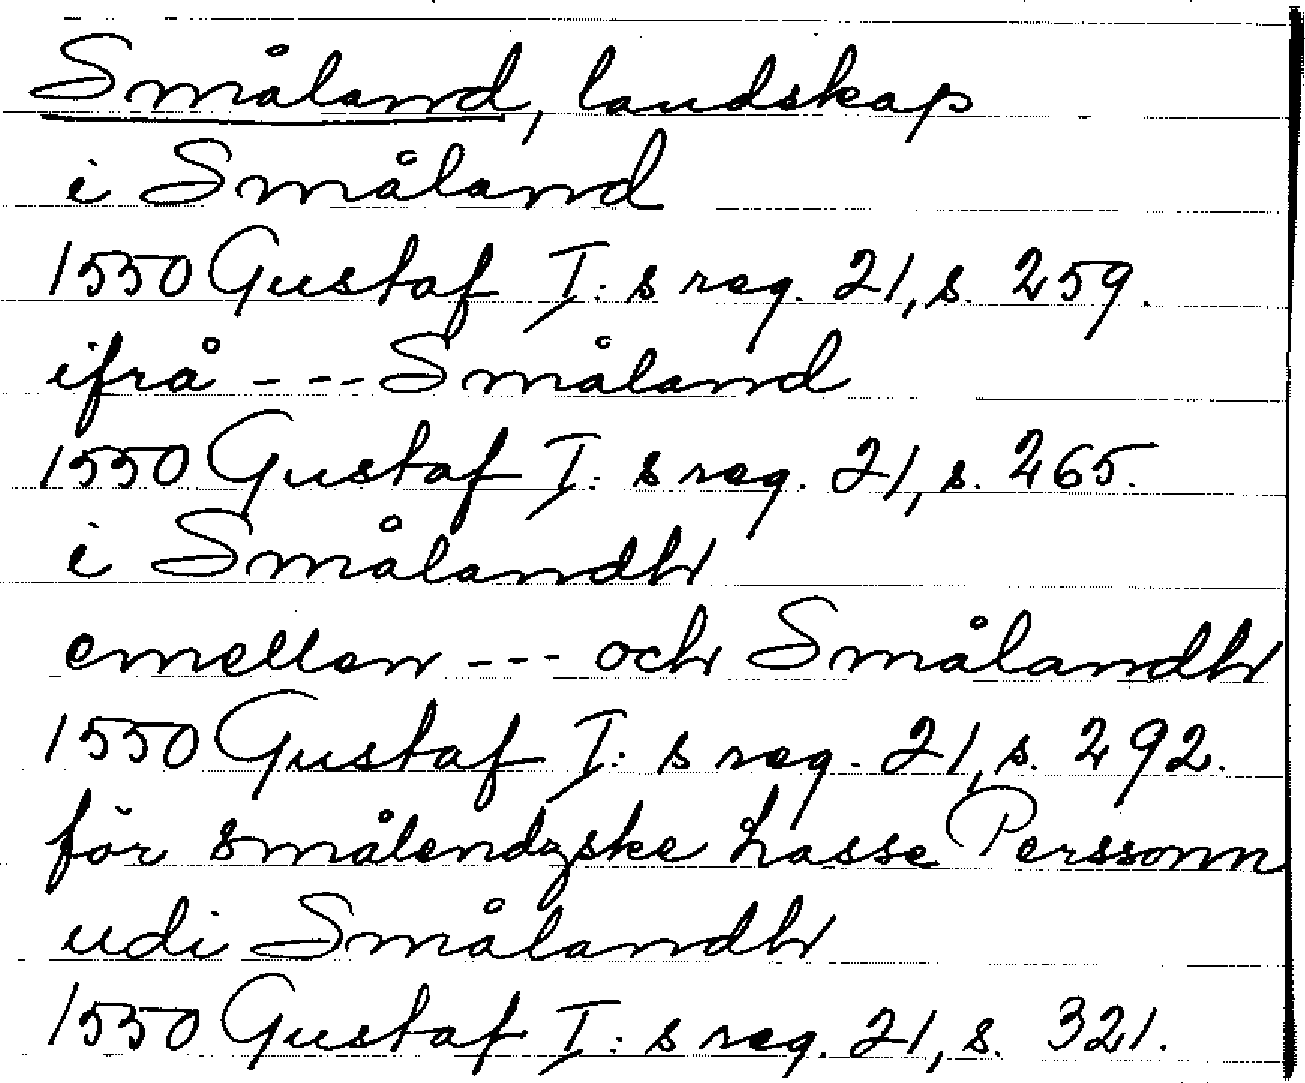 Småland, landskap
i Småland
1550 Gustaf I: s reg. 21, s. 259.
ifrå --- Småland
1550 Gustaf I: s reg. 21, s. 265.
i Smålandh
emellen --- och Smålandh
1550 Gustaf I: s reg. 21, s. 292.
för smålendzske hasse Perssonn
udi Smålandh
1550 Gustaf I: s reg. 21, s. 321.